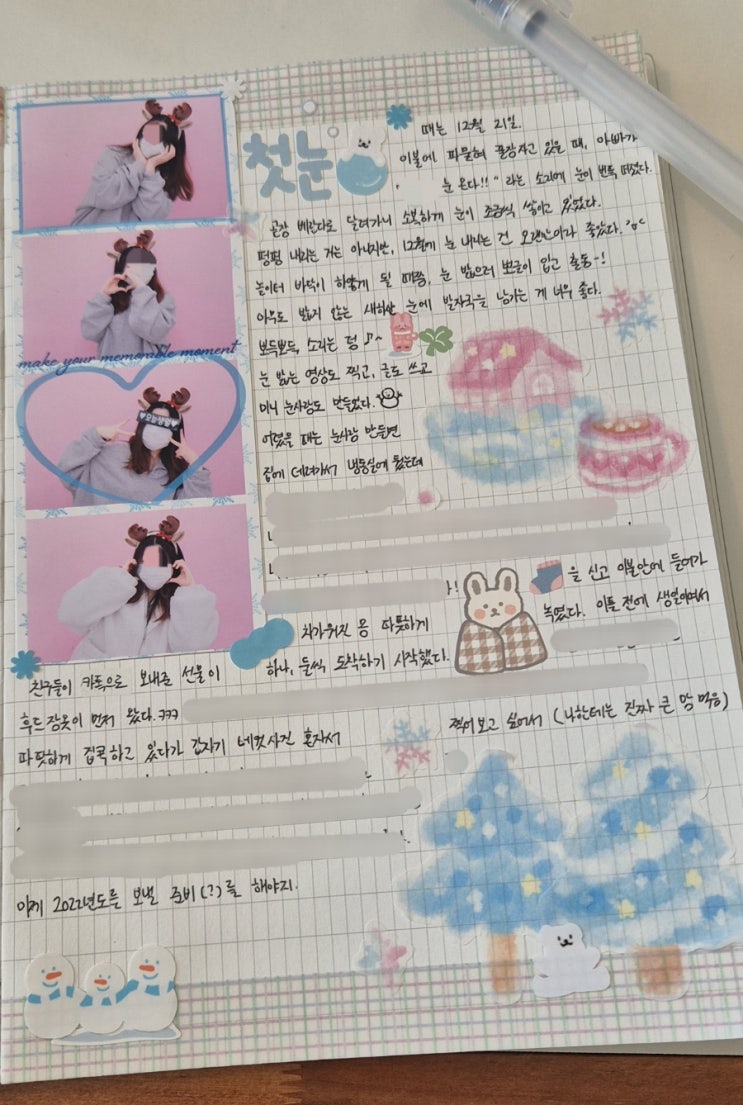 첫눈
때는 12월 21일.
이불에 파묻혀 꿀잠자고 있을 때, 아빠가
"눈 온다!!" 라는 소리에 눈이 번뜩 떠졌다.
곧장 베란다로 달려가니 소복하게 눈이 조금씩 쌓이고 있었다.
펑펑 내리는 거는 아니지만, 12월에 눈 내리는 건 오랜만이라 좋았다.
놀이터 바닥이 하얗게 될 때쯤, 눈 밟으러 뽀글이 입고 출동~!
아무도 밟지 않는 새하얀 눈에 발자국을 남기는 게 너무 좋다.
뽀득뽀득, 소리는 덤 ♪~
눈 밟는 영상도 찍고, 글도 쓰고
미니 눈사람도 만들었다.
어렸을 때는 눈사람 만들면
집에 데려가서 냉동실에 뒀는데
!
차가워진 몸 따뜻하게
을 신고 이불안에 들어가
녹였다. 이틀 전에 생일이여서
친구들이 카톡으로 보내준 선물이
하나, 둘씩 도착하기 시작했다.
후드 잠옷이 먼저 왔다. ㅋㅋㅋ
따뜻하게 집콕하고 있다가 갑자기 네컷사진 혼자서
찍어 보고 싶어서 (나한테는 진짜 큰 맘 먹음)
이제 2022년도를 보낼 준비(?)를 해야지.
make your memorable moment
오늘생일